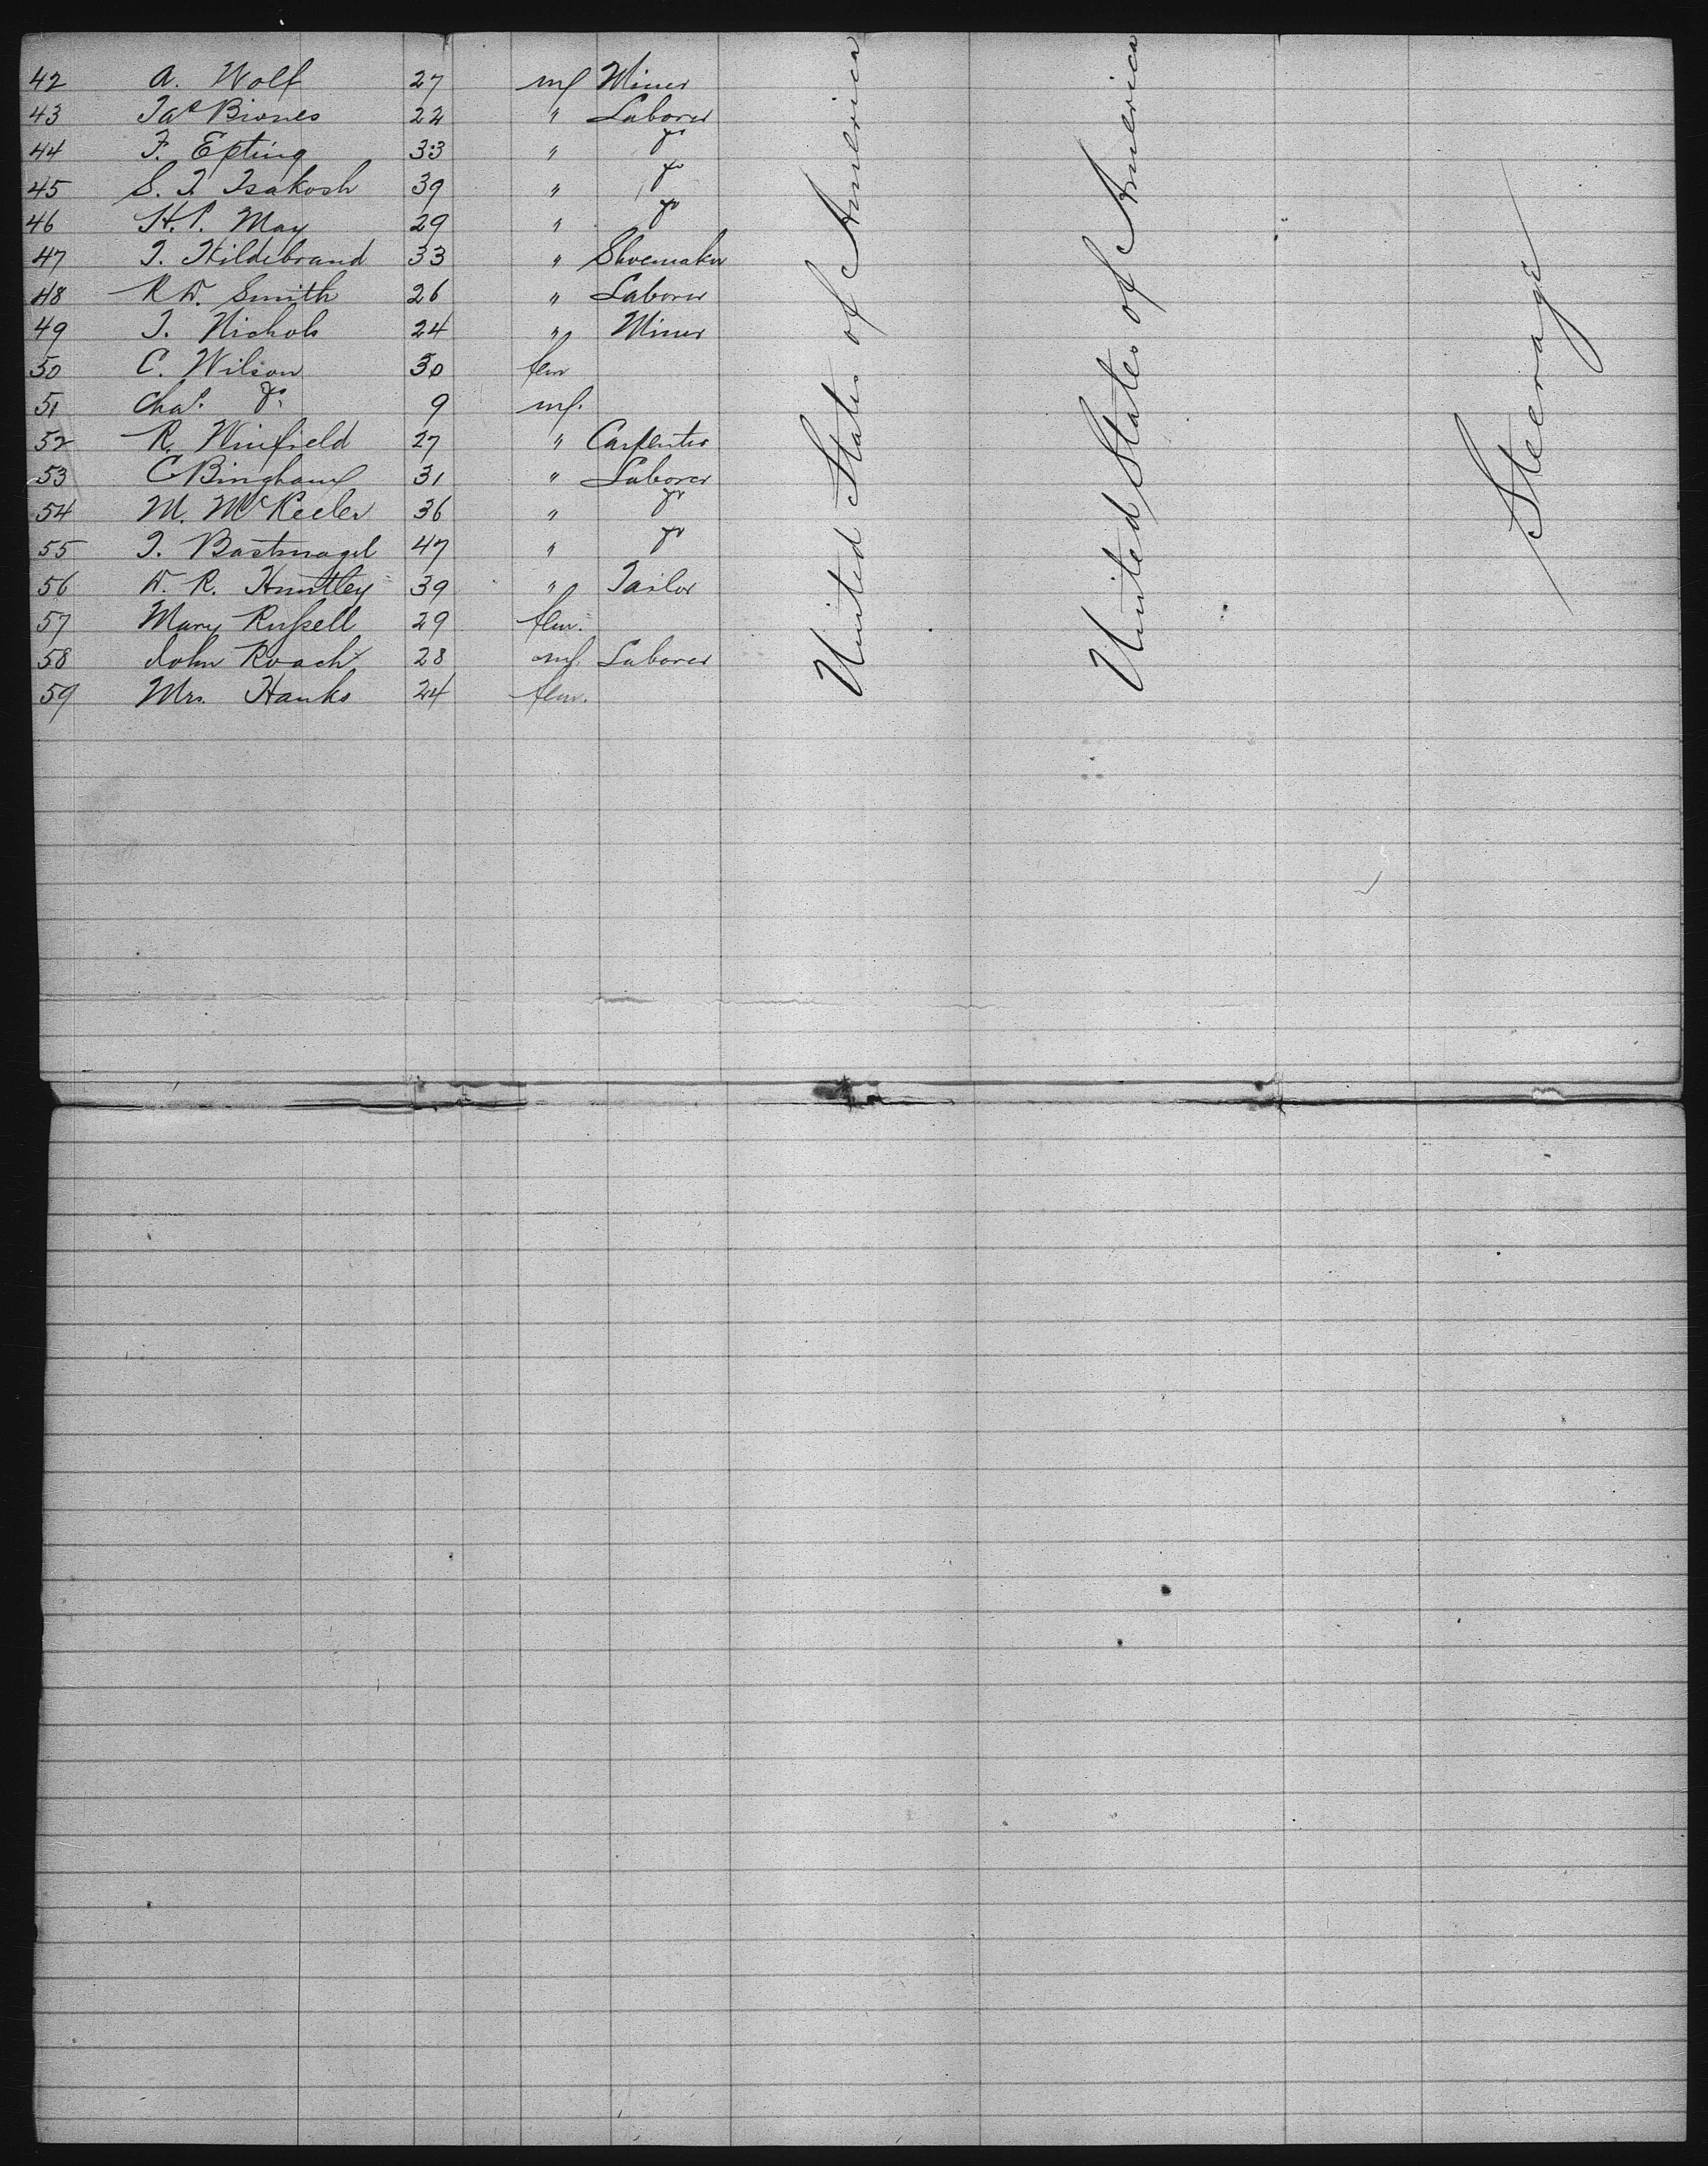 42 A. Wolf 27 m Miner
43 Jas Biones 22 " Laborer
44 F. Epting 33 " do
45 S. I. Isakosh 39 " do
46 H. P. May 29 " do
47 J. Hildebrand 33 " Shoemaker
48 R W. Smith 26 " Laborer
49 J. Nichols 24 " Miner
50 C. Wilson 30 fem
51 Chas. do 9 m.
52 R. Winfield 27 " Carpenter
53 C Bingham 31 " Laborer
54 M. McKeeler 36 " do
55 J. Bastnagel 47 " do
56 W. R. Huntley 39 " Tailor
57 Mary Russell 29 fem.
58 John Roach 28 m. Laborer
59 Mrs. Hanks 24 fem.
United States of America
United States of America
Steerage